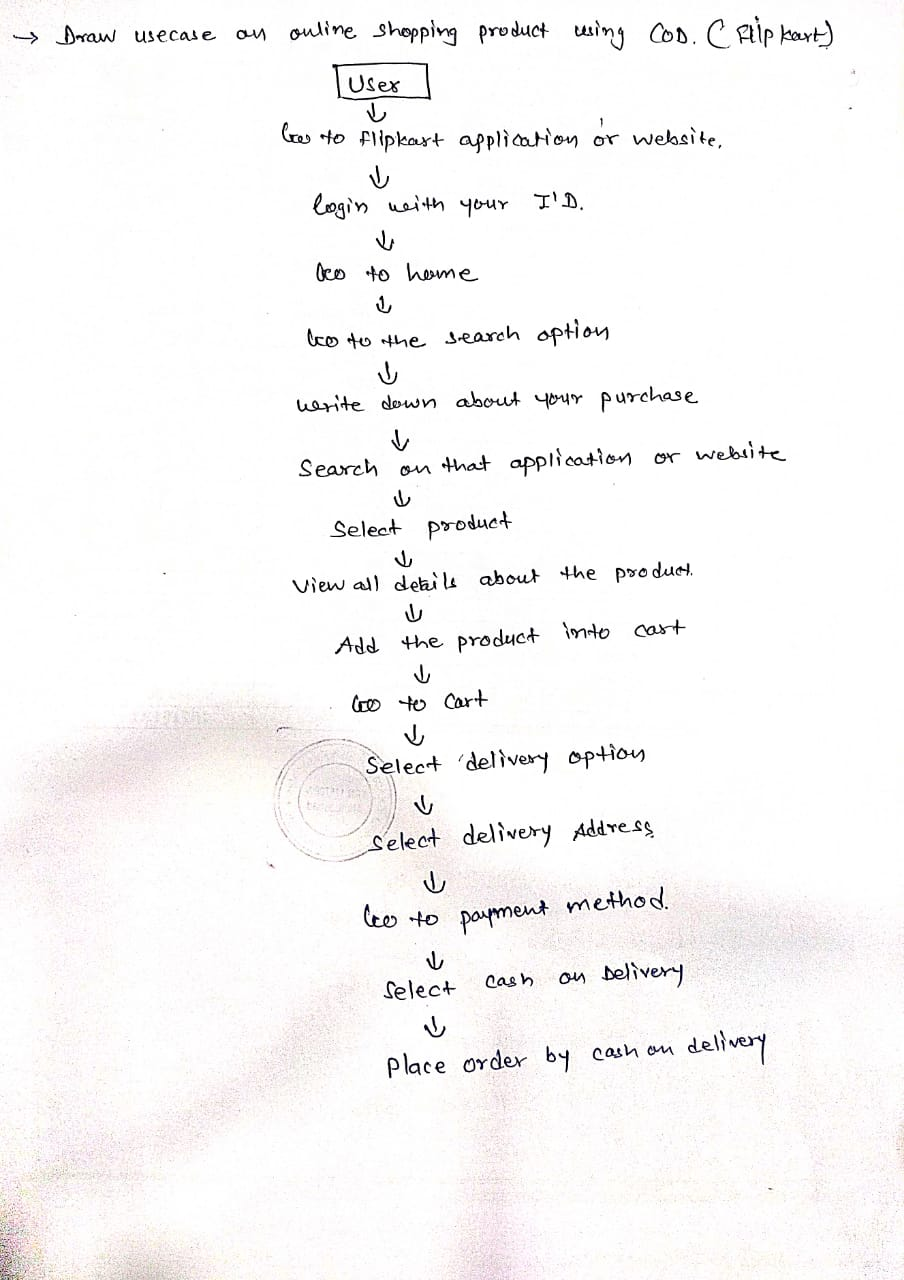 → Draw usecase on online shopping product using COD. (Flipkart)
User
↓
Goo to flipkart application or website.
↓
login with your I'D.
↓
Goo to home
↓
Goo to the search option
↓
write down about your purchase
↓
Search on that application or website
↓
Select product
↓
View all details about the product.
↓
Add the product into cart
↓
Goo to Cart
↓
Select delivery option
↓
Select delivery Address
↓
Goo to payment method.
↓
Select cash on Delivery
↓
Place order by cash on delivery